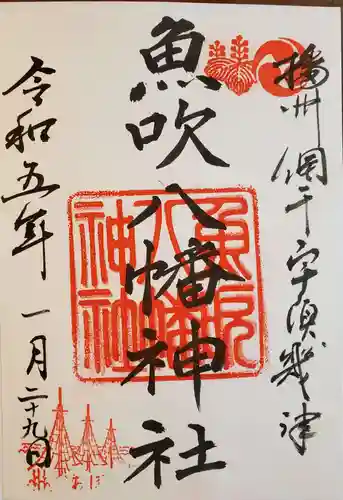 播州網干宇須幾津
魚吹八幡神社
令和五年一月二十九日
魚吹八幡神社